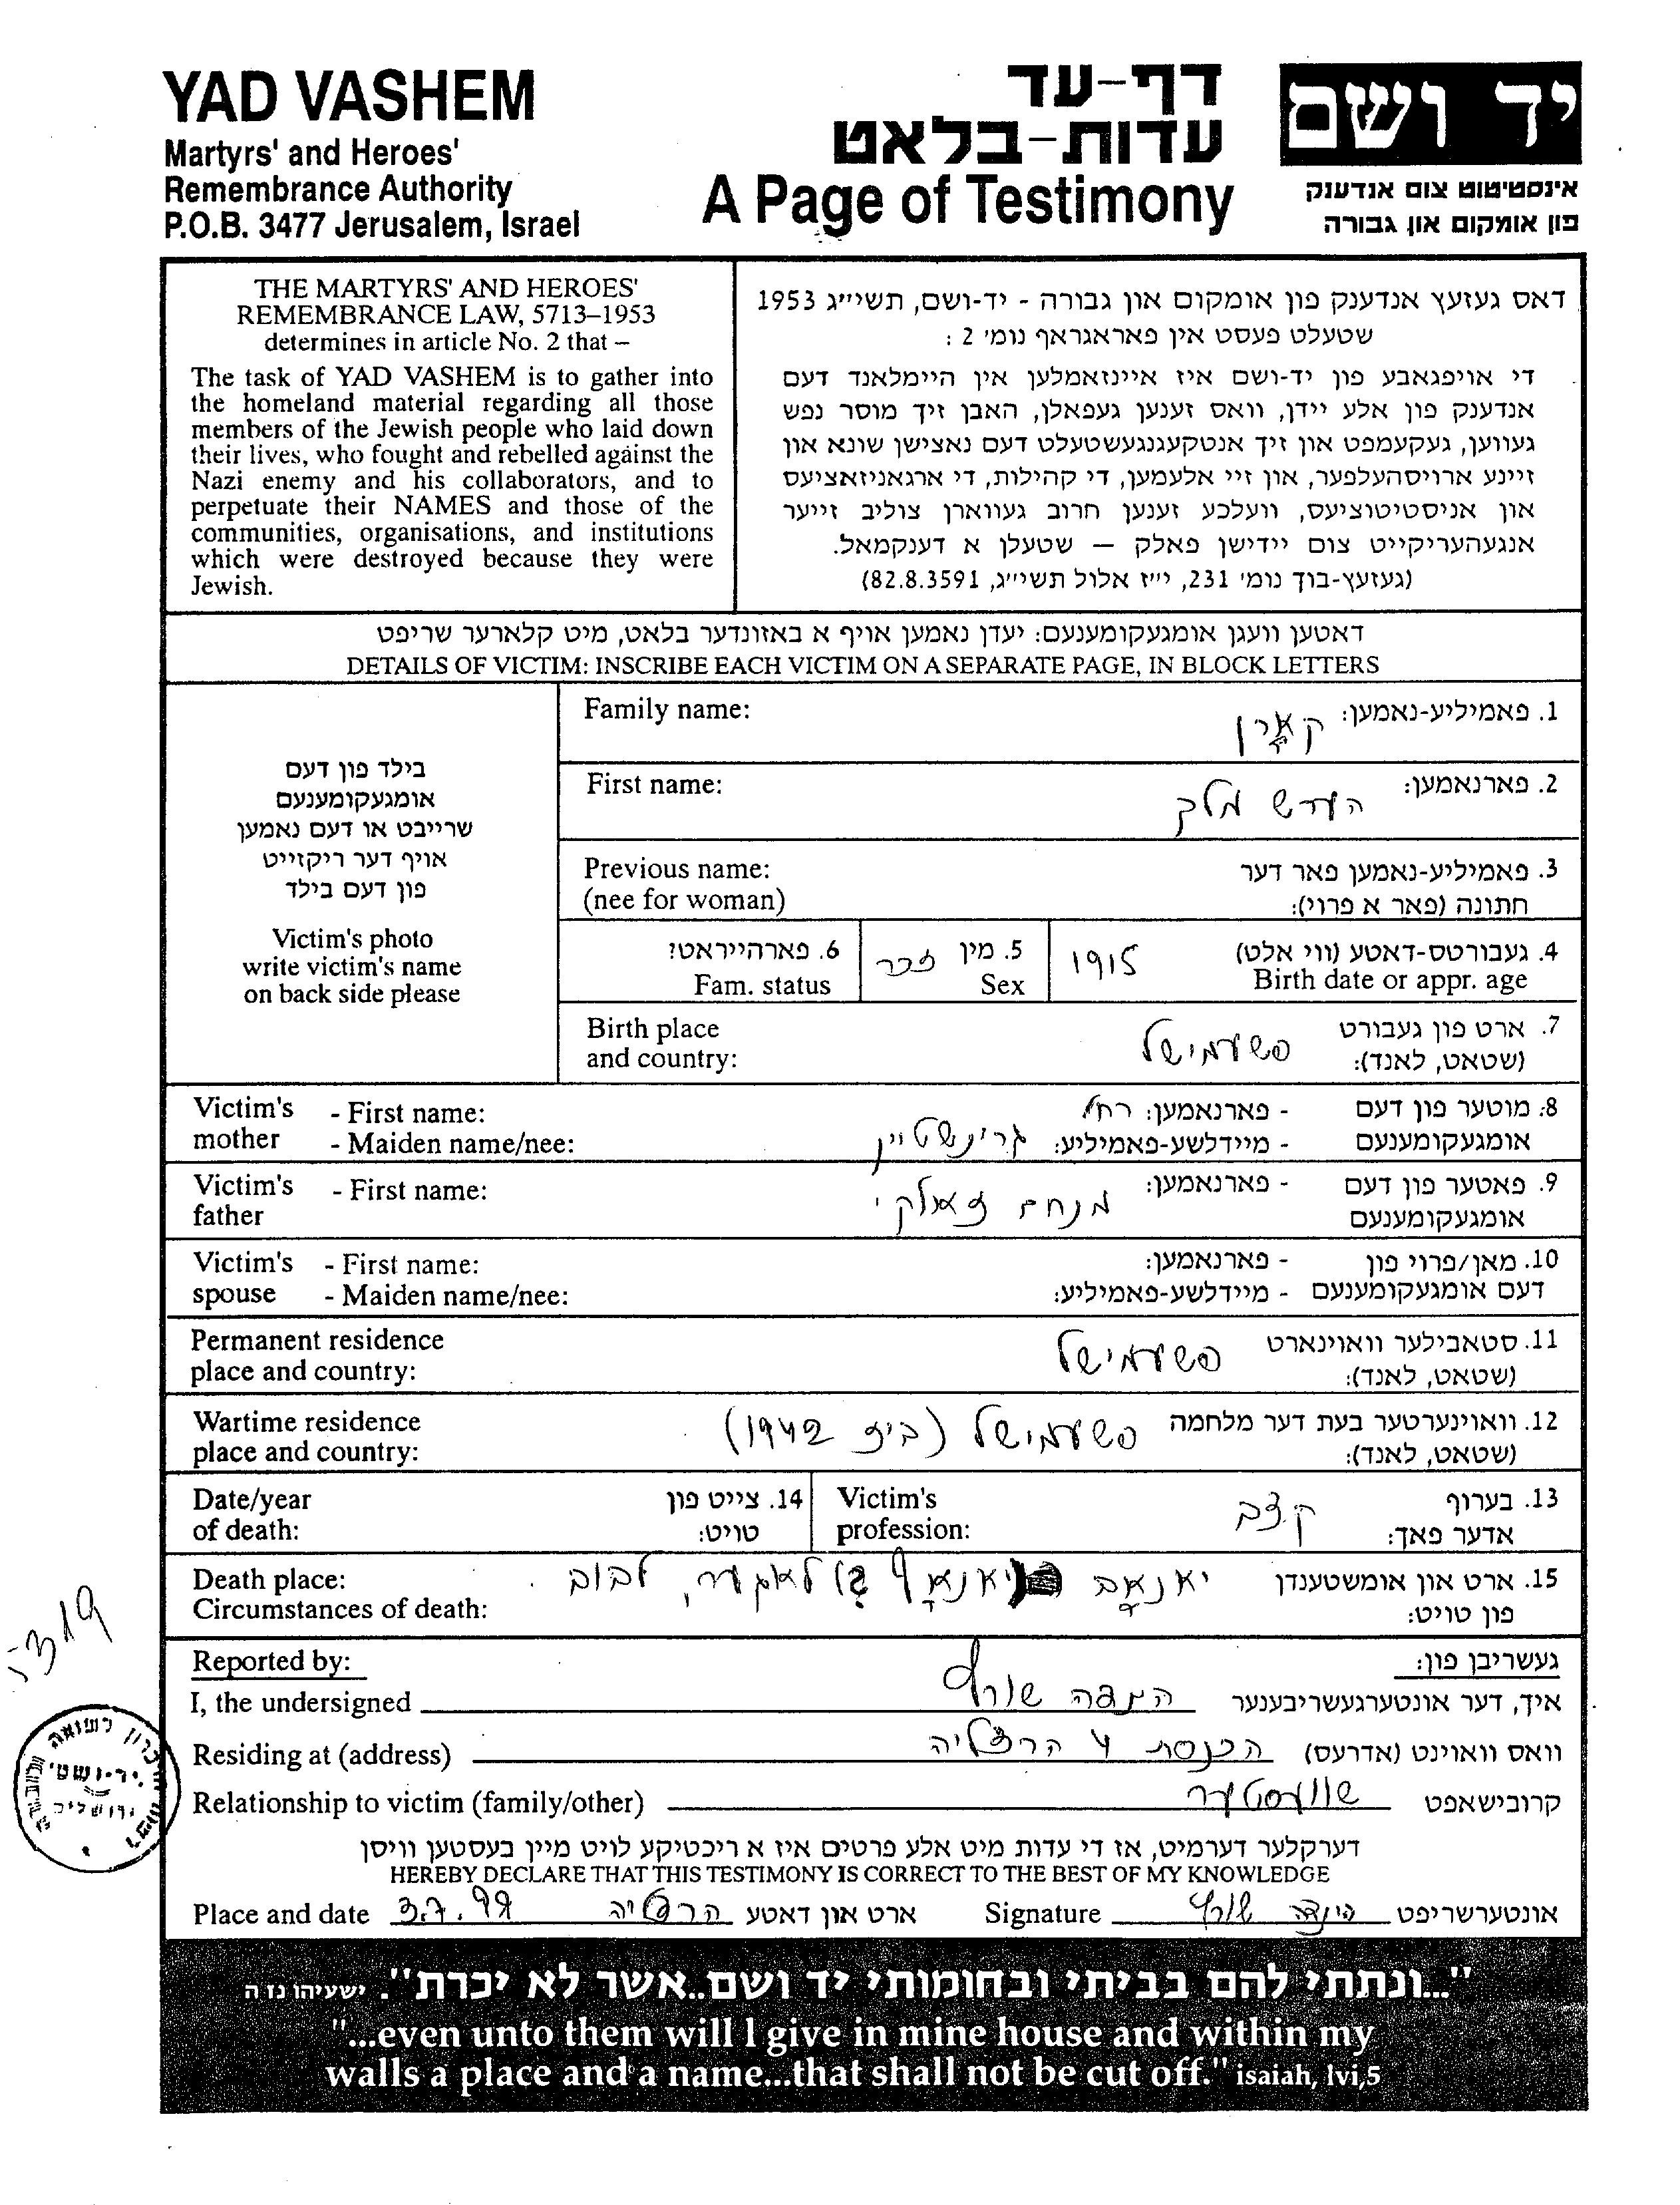 YAD VASHEM
Martyrs' and Heroes'
Remembrance Authority
P.O.B. 3477 Jerusalem, Israel
דף-עד
עדות-בלאט
A Page of Testimony
יד ושם
אינסטיטוט צום אנדענק
פון אומקום און גבורה
THE MARTYRS' AND HEROES'
REMEMBRANCE LAW, 5713–1953
determines in article No. 2 that –
The task of YAD VASHEM is to gather into
the homeland material regarding all those
members of the Jewish people who laid down
their lives, who fought and rebelled against the
Nazi enemy and his collaborators, and to
perpetuate their NAMES and those of the
communities, organisations, and institutions
which were destroyed because they were
Jewish.
דאס געזעץ אנדענק פון אומקום און גבורה - יד-ושם, תשי״ג 1953
שטעלט פעסט אין פאראגראף נומ׳ 2 :
די אויפגאבע פון יד-ושם איז איינזאמלען אין היימלאנד דעם
אנדענק פון אלע יידן, וואס זענען געפאלן, האבן זיך מוסר נפש
געווען, געקעמפט און זיך אנטקעגנגעשטעלט דעם נאצישן שונא און
זיינע ארויסהעלפער, און זיי אלעמען, די קהילות, די ארגאניזאציעס
און אניסטיטוציעס, וועלכע זענען חרוב געווארן צוליב זייער
אנגעהעריקייט צום יידישן פאלק — שטעלן א דענקמאל.
(געזעץ-בוך נומ׳ 231, י״ז אלול תשי״ג, 82.8.3591)
דאטען וועגן אומגעקומענעם: יעדן נאמען אויף א באזונדער בלאט, מיט קלארער שריפט
DETAILS OF VICTIM: INSCRIBE EACH VICTIM ON A SEPARATE PAGE, IN BLOCK LETTERS
בילד פון דעם
אומגעקומענעם
שרייבט או דעם נאמען
אויף דער ריקזייט
פון דעם בילד
Victim's photo
write victim's name
on back side please
Family name: 1. פאמיליע-נאמען: קארן
First name: 2. פארנאמען: הערש מלך
Previous name: 3. פאמיליע-נאמען פאר דער
(nee for woman) חתונה (פאר א פרוי):
4. געבורטס-דאטע (ווי אלט) 1915 5. מין זכר 6. פארהייראט?
Birth date or appr. age Sex Fam. status
Birth place 7. ארט פון געבורט פשעמישל
and country: (שטאט, לאנד):
Victim's - First name: 8. מוטער פון דעם - פארנאמען: רחל
mother - Maiden name/nee: אומגעקומענעם - מיידלשע-פאמיליע: גרינשטיין
Victim's - First name: 9. פאטער פון דעם - פארנאמען: מנחם זאלקי
father אומגעקומענעם
Victim's - First name: 10. מאן/פרוי פון - פארנאמען:
spouse - Maiden name/nee: דעם אומגעקומענעם - מיידלשע-פאמיליע:
Permanent residence 11. סטאבילער וואוינארט פשעמישל
place and country: (שטאט, לאנד):
Wartime residence 12. וואוינערטער בעת דער מלחמה פשעמישל (ביז 1942)
place and country: (שטאט, לאנד):
Date/year 14. צייט פון Victim's 13. בערוף קצב
of death: טויט: profession: אדער פאך:
Death place: 15. ארט און אומשטענדן יאנאב לאגער, לבוב
Circumstances of death: פון טויט:
5319
Reported by: געשריבן פון:
I, the undersigned איך, דער אונטערגעשריבענער הינדה שורץ
Residing at (address) וואס וואוינט (אדרעס) הכנסת 4 הרצליה
Relationship to victim (family/other) קרובישאפט שוועסטער
דערקלער דערמיט, אז די עדות מיט אלע פרטים איז א ריכטיקע לויט מיין בעסטען וויסן
HEREBY DECLARE THAT THIS TESTIMONY IS CORRECT TO THE BEST OF MY KNOWLEDGE
Place and date 3.7.99 הרצליה ארט און דאטע Signature הינדה שורץ אונטערשריפט
יד-ושם
ירושלים
"...ונתתי להם בביתי ובחומותי יד ושם..אשר לא יכרת". ישעיהו נז ה
"...even unto them will I give in mine house and within my
walls a place and a name...that shall not be cut off." isaiah, lvi,5